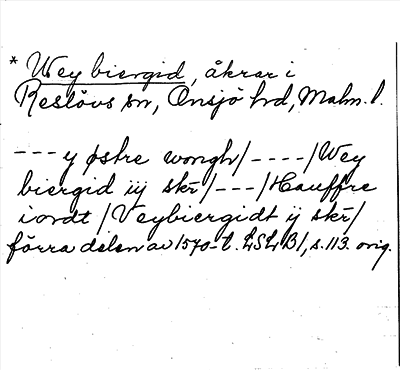 * Wey biergid, åkrar i
Reslövs sn, Onsjö hd, Malm. l.
--- y østre wongh/----/Wey
biergid iij skr/---/Hauffre
iordt/Veybiergidt ij skr/
förra delen av 1570-t. LSLB1, s. 113. orig.